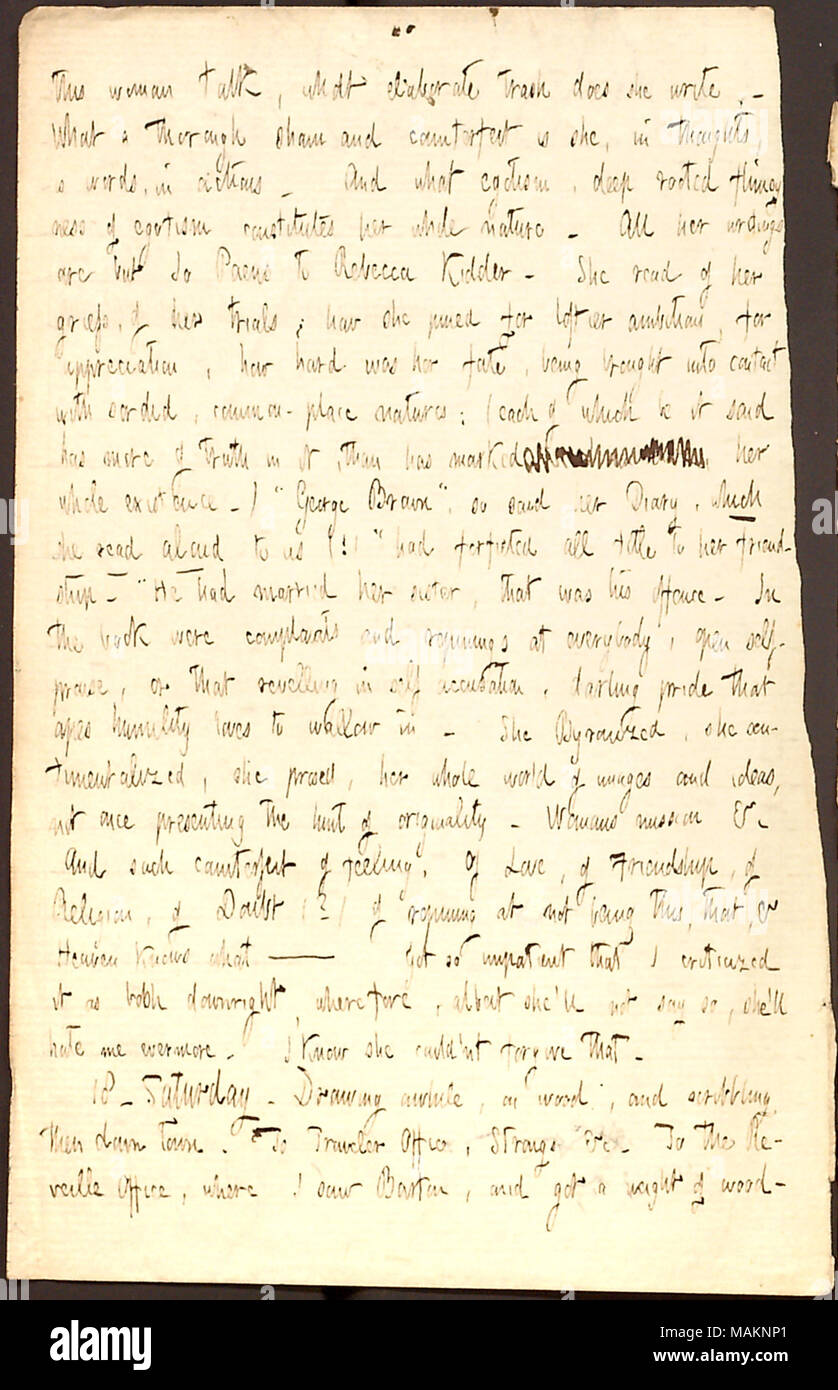 this woman talk, what elaborate trash does she write. –
What a thorough sham and counterfeit is she, in thoughts,
in words, in actions – And what egotism, deep rooted
ness of egotism constitutes her whole nature – All her writings
are but Io Paens to Rebecca Kidder – She read of her
griefs, of her trials; how she pined for loftier ambition, for
appreciation, how hard was her fate, being brought into contact
with sordid, common-place natures; (each of which be it said
has more of truth in it, than has marked her
whole existence –) "George Brown", so said her Diary, which
she read aloud to us (!) "had forfeited all title to her friend-
ship – " He had married her sister, that was his offence – In
the book were complaints and repinings at everybody, open self-
praise, or that revelling in self accusation, darling pride that
apes humility loves to wallow in – She Byronized, she sen-
timentalized, she prosed, her whole world of images and ideas,
not once presenting the hint of originality – Womans mission &c
And such counterfeit of feeling. Of Love, of Friendship, of
Religion, of Doubt (?) of repining at not being this, that, &
Heaven knows what —— Got so impatient that I criticized
it as bosh downright, wherefore, albeit she'll not say so, she'll
hate me evermore – I know she could'nt forgive that –
18 – Saturday – Drawing awhile, on wood, and scribbling,
then down town. To Traveler Office, Strongs &c – To the Re-
veille Office, where I saw Barton, and got a weight of wood–
alamy
Image ID: MAKNP1
www.alamy.com